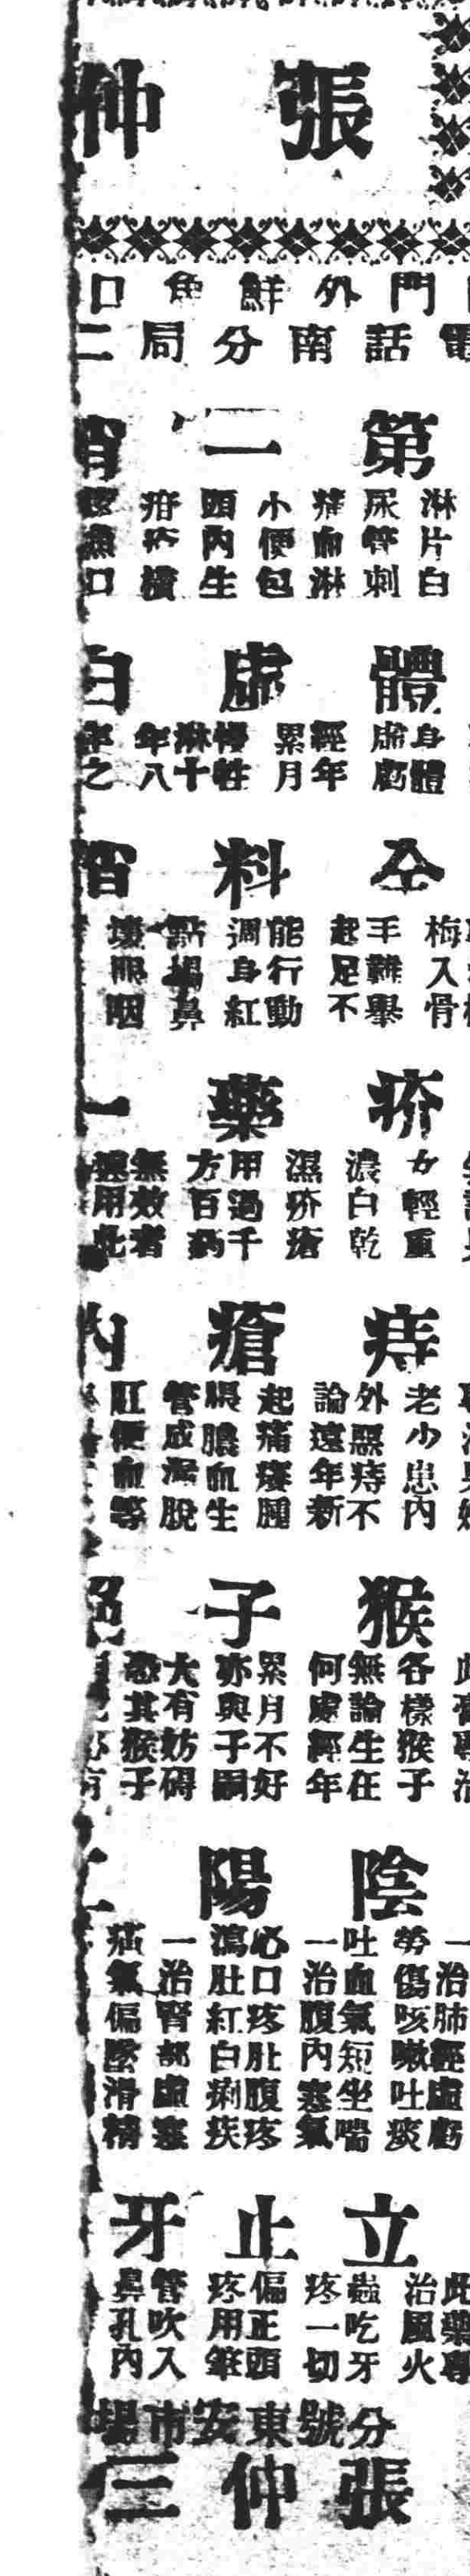 張仲
門外鮮魚口
電話南分局二
第二
淋片白
尿管刺
血淋
小便包
頭內生
疳疮橫
口
體虛白
身體
虛虧
經年
累月
慢性
淋十
年八
之
全料
梅入骨
手難舉
起足不
能行動
週身紅
點揚鼻
壞眼咽
疥藥一
女輕重
濃白乾
濕疥瘡
用過千
方百葯
無效者
速用此
痔瘡內
老少患內
外惡痔不
論遠年新
起痛癢腫
脹膿血生
管成漏脫
肛便血等
猴子
此膏專治
各樣猴子
無論生在
何處經年
累月不好
亦與子嗣
大有妨碍
恐其猴子
陰陽
一治肺經虛虧
勞傷咳嗽吐痰
吐血氣短坐喘
一治腹內寒氣
必口疼肚腹疼
瀉肚紅白痢疾
一治腎部虛寒
疝氣偏墜滑精
立止牙
此藥專
治風火
蟲吃牙
疼一切
偏正頭
疼用筆
管吹入
鼻孔內
分號東安市場
張仲三